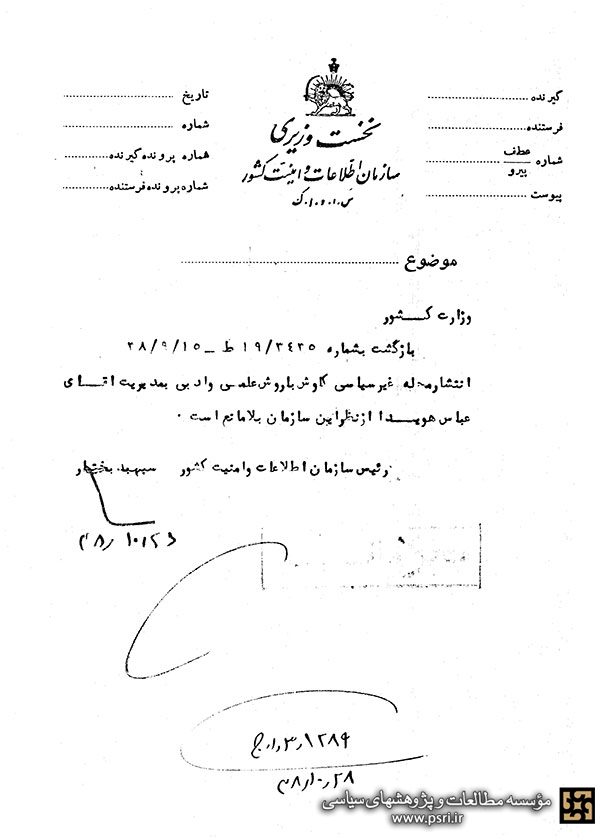 گیرنده
فرستنده
شماره عطف
پیرو
پیوست
نخست وزیری
سازمان اطلاعات و امنیت کشور
س.ا.و.ا.ک
تاریخ
شماره
شماره پرونده گیرنده
شماره پرونده فرستنده
موضوع
وزارت کشور
بازگشت بشماره ۱۹/۳۴۲۵ ط – ۳۸/۹/۱۵
انتشار مجله غیر سیاسی کاوش با روش علمی و ادبی بمدیریت آقای
عباس هویدا از نظر این سازمان بلامانع است ۰
رئیس سازمان اطلاعات و امنیت کشور سپهبد بختیار
مؤسسه مطالعات و پژوهشهای سیاسی
www.psri.ir